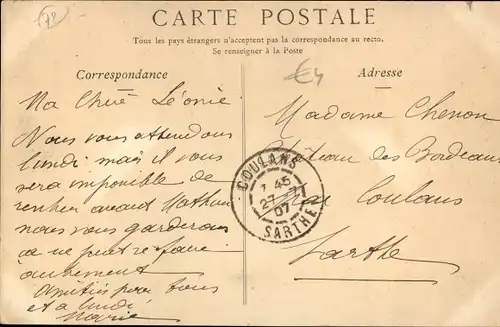 78
CARTE POSTALE
Tous les pays étrangers n'acceptent pas la correspondance au recto.
Se renseigner à la Poste
Correspondance
Ma Chère Léonie
Nous vous attendons
lundi mais il vous
sera impossible de
rentrer avant
nous vous garderons
ça ne peut se faire
autrement
Amitiés pour tous
et à lundi
Marie
€4
Adresse
Madame Chenon
Château des Bordeaux
Coulans
Sarthe
COULANS
7 45
27
07
SARTHE